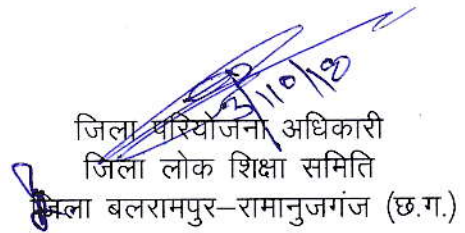 3/10/18
जिला परियोजना अधिकारी
जिला लोक शिक्षा समिति
जिला बलरामपुर–रामानुजगंज (छ.ग.)